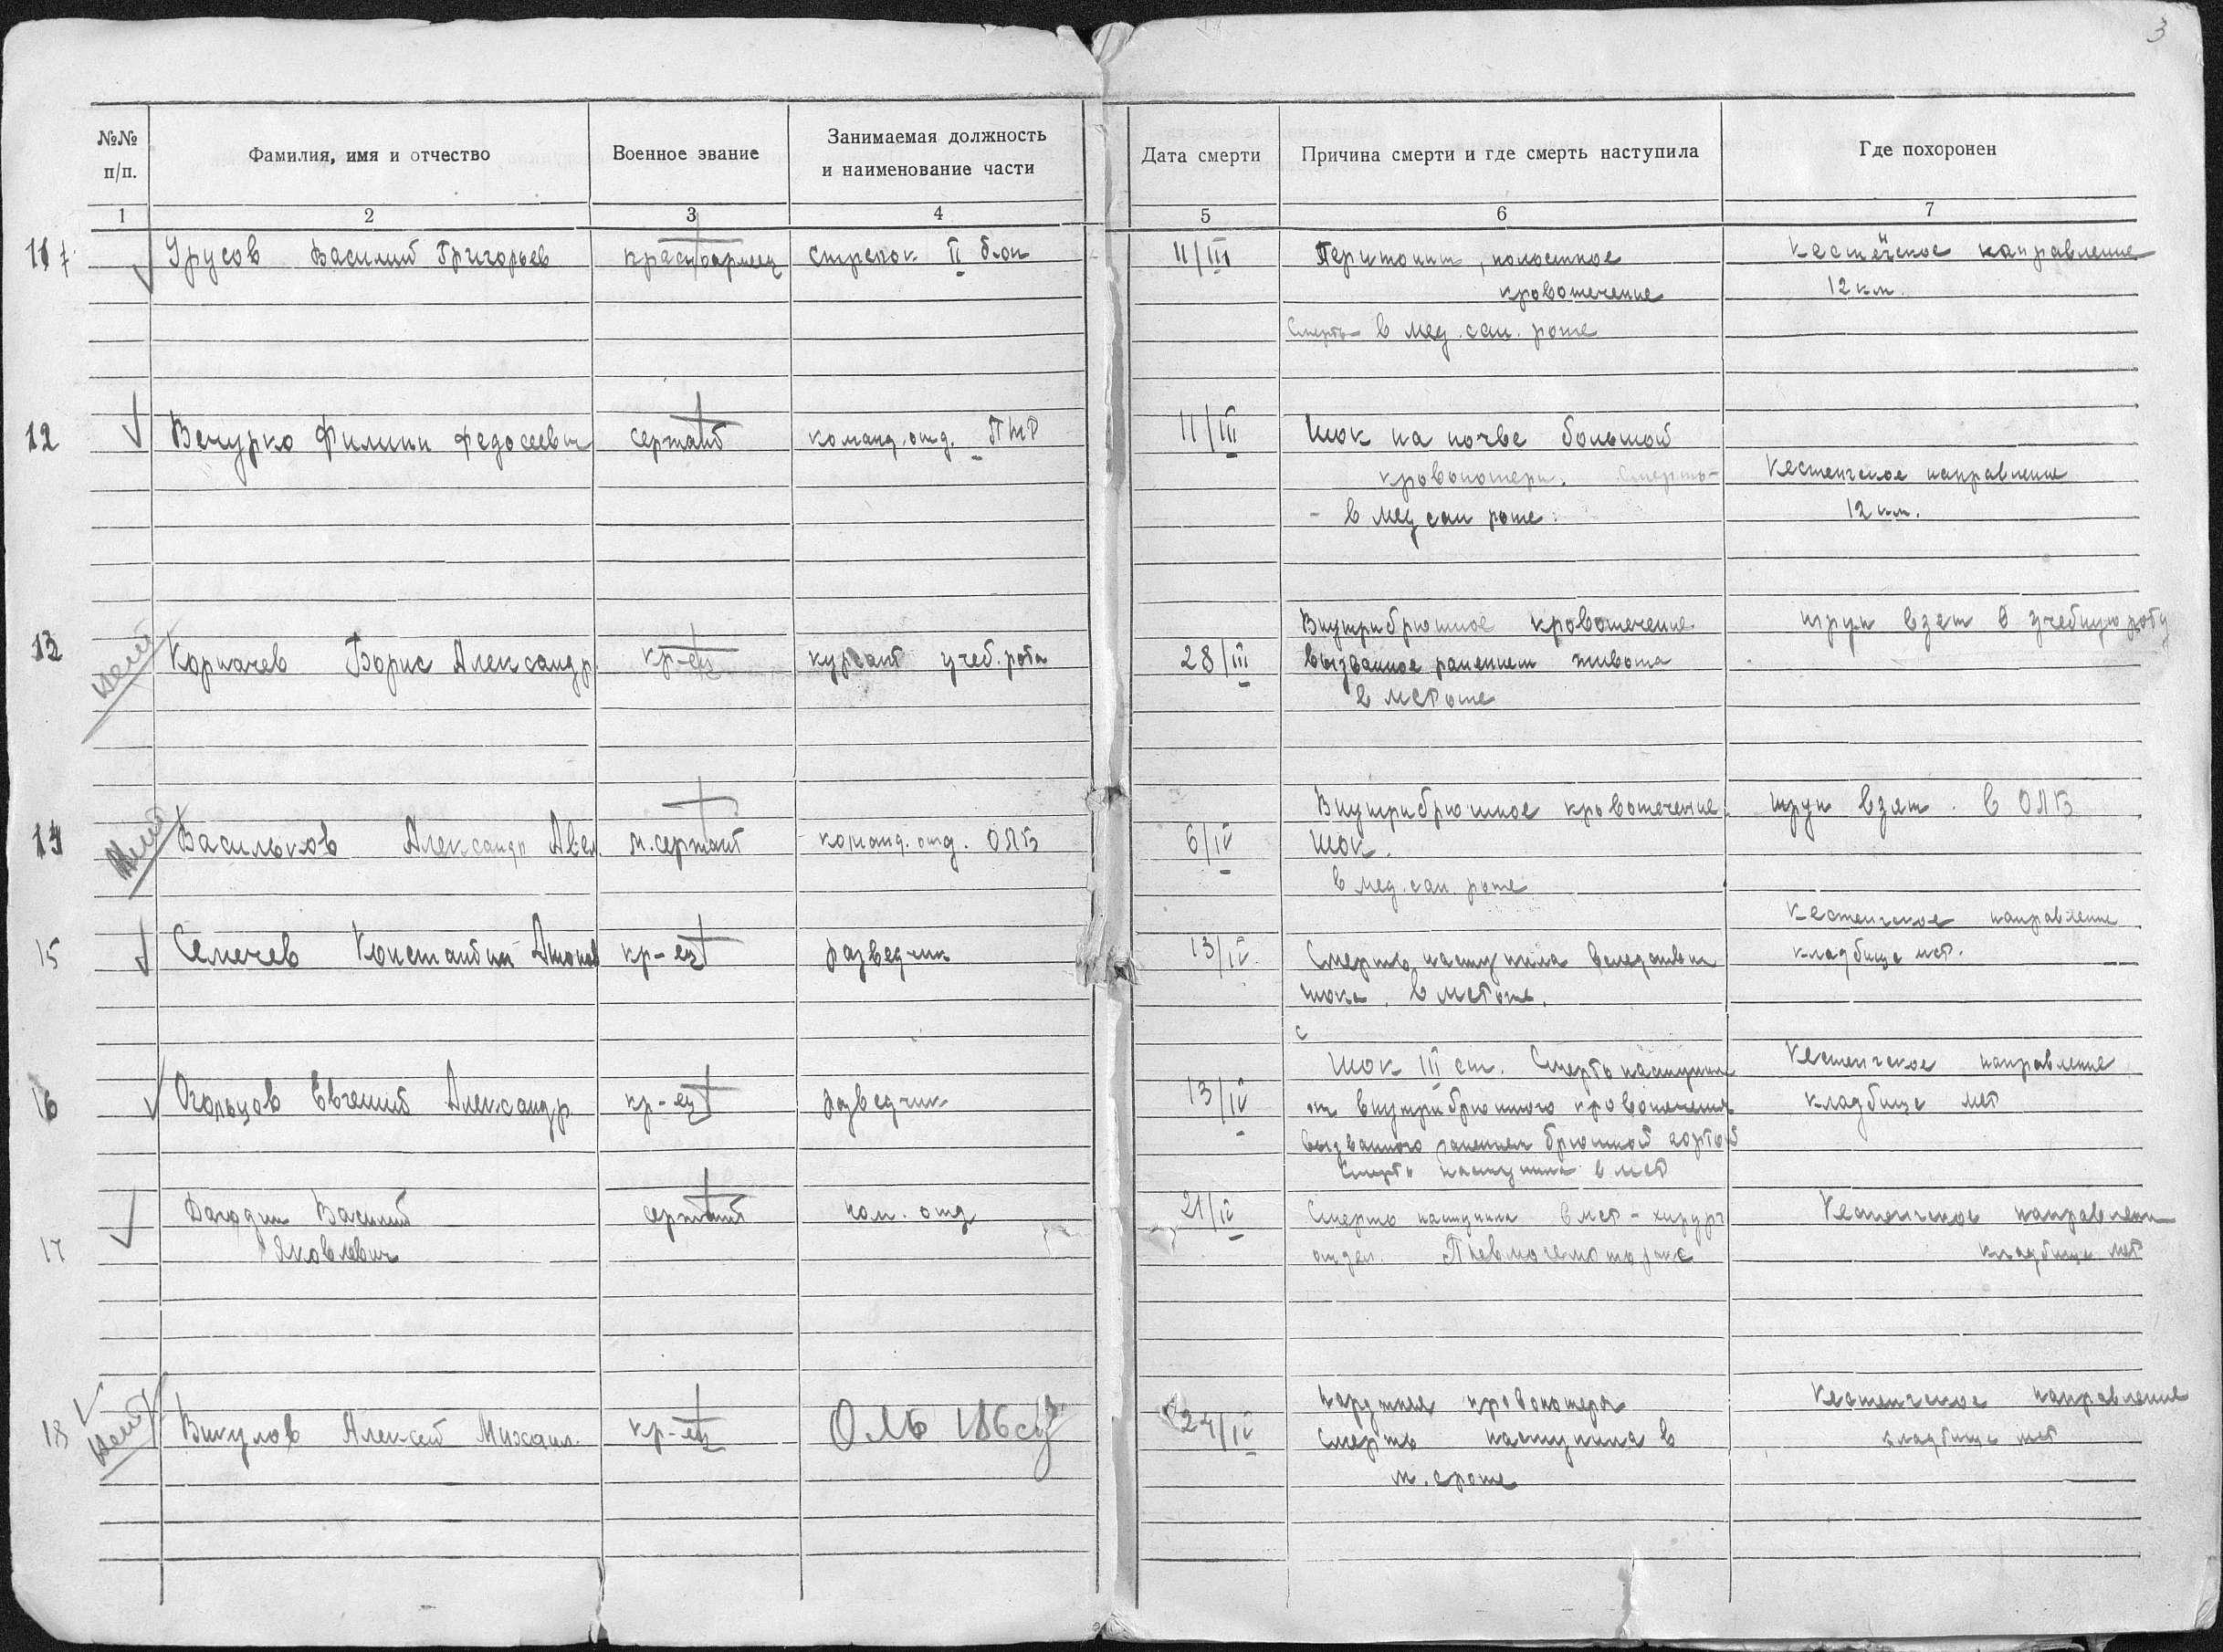 3
№№ п/п.
Фамилия, имя и отчество
Военное звание
Занимаемая должность и наименование части
Дата смерти
Причина смерти и где смерть наступила
Где похоронен
1 2 3 4 5 6 7
11 Урусов Василий Григорьев красноармеец стрелок II б-он 11/III Перитонит, полостное Кестеньгское направление
кровотечение 12 км.
Смерть в мед. сан. роте
12 Вечурко Филипп Федосеевич сержант команд. отд. ПТР 11/III Шок на почве большой
кровопотери. Смерть - Кестенгское направление
- в мед сан роте. 12 км.
Внутрибрюшное кровотечение труп взят в учебную роту
13 Корначев Борис Александр. кр-ец курсант учеб. рота 28/III вызванное ранением живота
в МСРоте
Внутрибрюшное кровотечение. труп взят в ОЛБ
14 Васильков Александр м. сержант команд. отд. ОЛБ 6/IV Шок.
в мед. сан. роте
Кестенгское направление
15 Семечев Константин кр-ец разведчик 13/IV Смерть наступила вследствии кладбище мср.
шока. в мсроте.
с
Шок III ст. Смерть наступила Кестенгское направление
16 Огольцов Евгений Александр кр-ец разведчик 13/IV от внутрибрюшного кровотечения кладбище мср
вызванного ранением брюшной аорты
Смерть наступила в мср
Василий сержант ком. отд 21/IV Смерть наступила в мср - хирург Кестенгское направлен
17 Яковлевич отдел. Пневмогемоторакс кладбище мср
наружная кровопотеря Кестенгское направление
18 Викулов Алексей Михаил. кр-ец ОЛБ 186 сд 24/IV Смерть наступила в кладбище мср
м. с роте